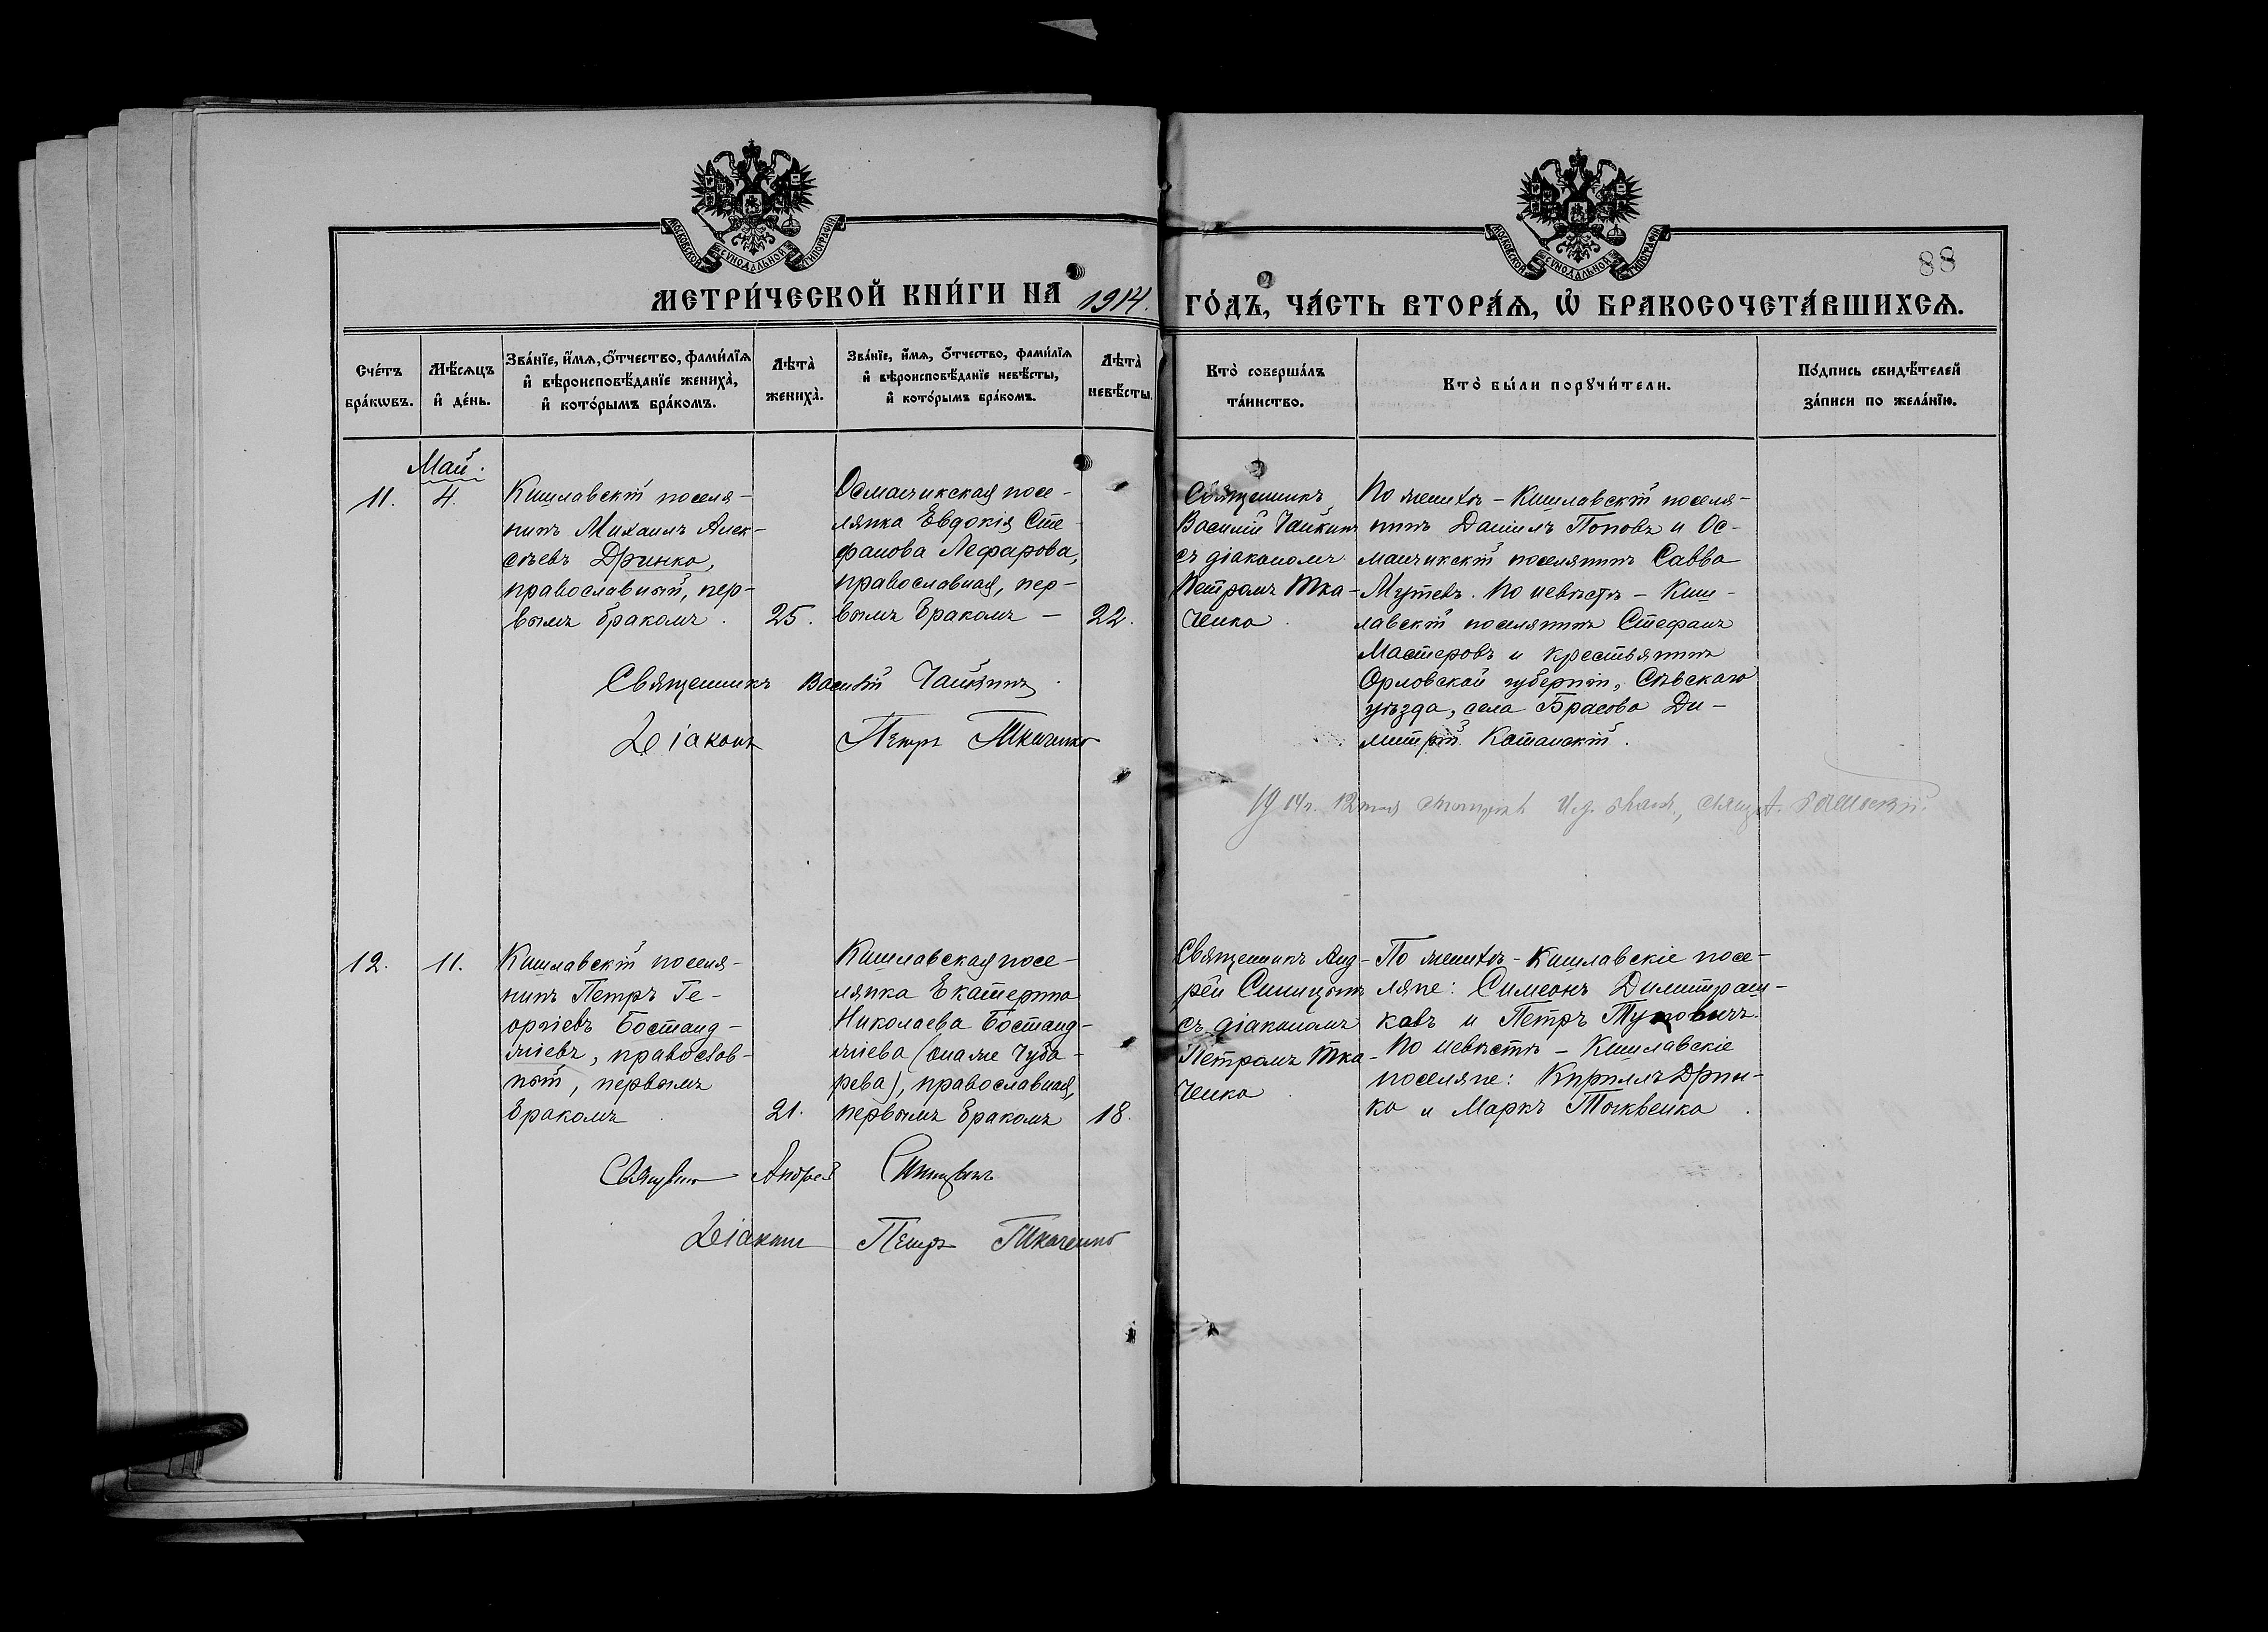 МОСКОВСКОЙ СУНОДАЛЬНОЙ ТИПОГРАФІИ
МОСКОВСКОЙ СУНОДАЛЬНОЙ ТИПОГРАФІИ
88
МЕТРИ́ЧЕСКОЙ КНИ́ГИ НА 1914. ГО́ДЪ, ЧА́СТЬ ВТОРА́Ѧ, Ѽ БРАКОСОЧЕТА́ВШИХСѦ.
Сче́тъ бра́кѡвъ.
Мѣ́сѧцъ и҆ де́нь.
Зва́нїе, и҆́мѧ, ѻ҆́тчество, фами́лїѧ
и҆ вѣроисповѣ́данїе жениха̀,
и҆ кото́рымъ бра́комъ.
Лѣта̀ жениха̀.
Зва́нїе, и҆́мѧ, ѻ҆́тчество, фами́лїѧ
и҆ вѣроисповѣ́данїе невѣ́сты,
и҆ кото́рымъ бра́комъ.
Лѣта̀ невѣ́сты.
Кто̀ соверша́лъ
та́инство.
Кто̀ бы́ли порꙋчи́тели.
По́дпись свидѣ́телей
за́писи по жела́нїю.
Май.
11. 4.
Кишлавскій поселя-
нинъ Михаилъ Алек-
сѣевъ Дринко,
православный, пер-
вымъ бракомъ. 25.
Османчикская посе-
лянка Евдокія Сте-
фанова Лефарова,
православная, пер-
вымъ бракомъ – 22.
Священникъ
Василій Чайкинъ
съ діакономъ
Петромъ Тка-
ченко.
По женихѣ – Кишлавскій поселя-
нинъ Даниилъ Поповъ и Ос-
манчикскій поселянинъ Савва
Мутевъ. По невѣстѣ – Киш-
лавскій поселянинъ Стефанъ
Мастеровъ и крестьянинъ
Орловской губерніи, Сѣвскаго
уѣзда, села Брасова Ди-
митрій Катанскій.
Священникъ Василій Чайкинъ.
Діаконъ Петръ Ткаченко
1914г. 12
12. 11.
Кишлавскій поселя-
нинъ Петръ Ге-
оргіевъ Бостанд-
жіевъ, православ-
ный, первымъ
бракомъ. 21.
Кишлавская посе-
лянка Екатерина
Николаева Бостанд-
жіева (она же Чуба-
рева), православная,
первымъ бракомъ 18.
Священникъ Анд-
рей Синицынъ
съ діакономъ
Петромъ Тка-
ченко.
По женихѣ – Кишлавскіе посе-
ляне: Симеонъ Димитраш-
ковъ и Петръ
По невѣстѣ – Кишлавскіе
поселяне: Кириллъ Дрин-
ко и Маркъ
Священникъ Андрей Синицынъ
Діаконъ Петръ Ткаченко